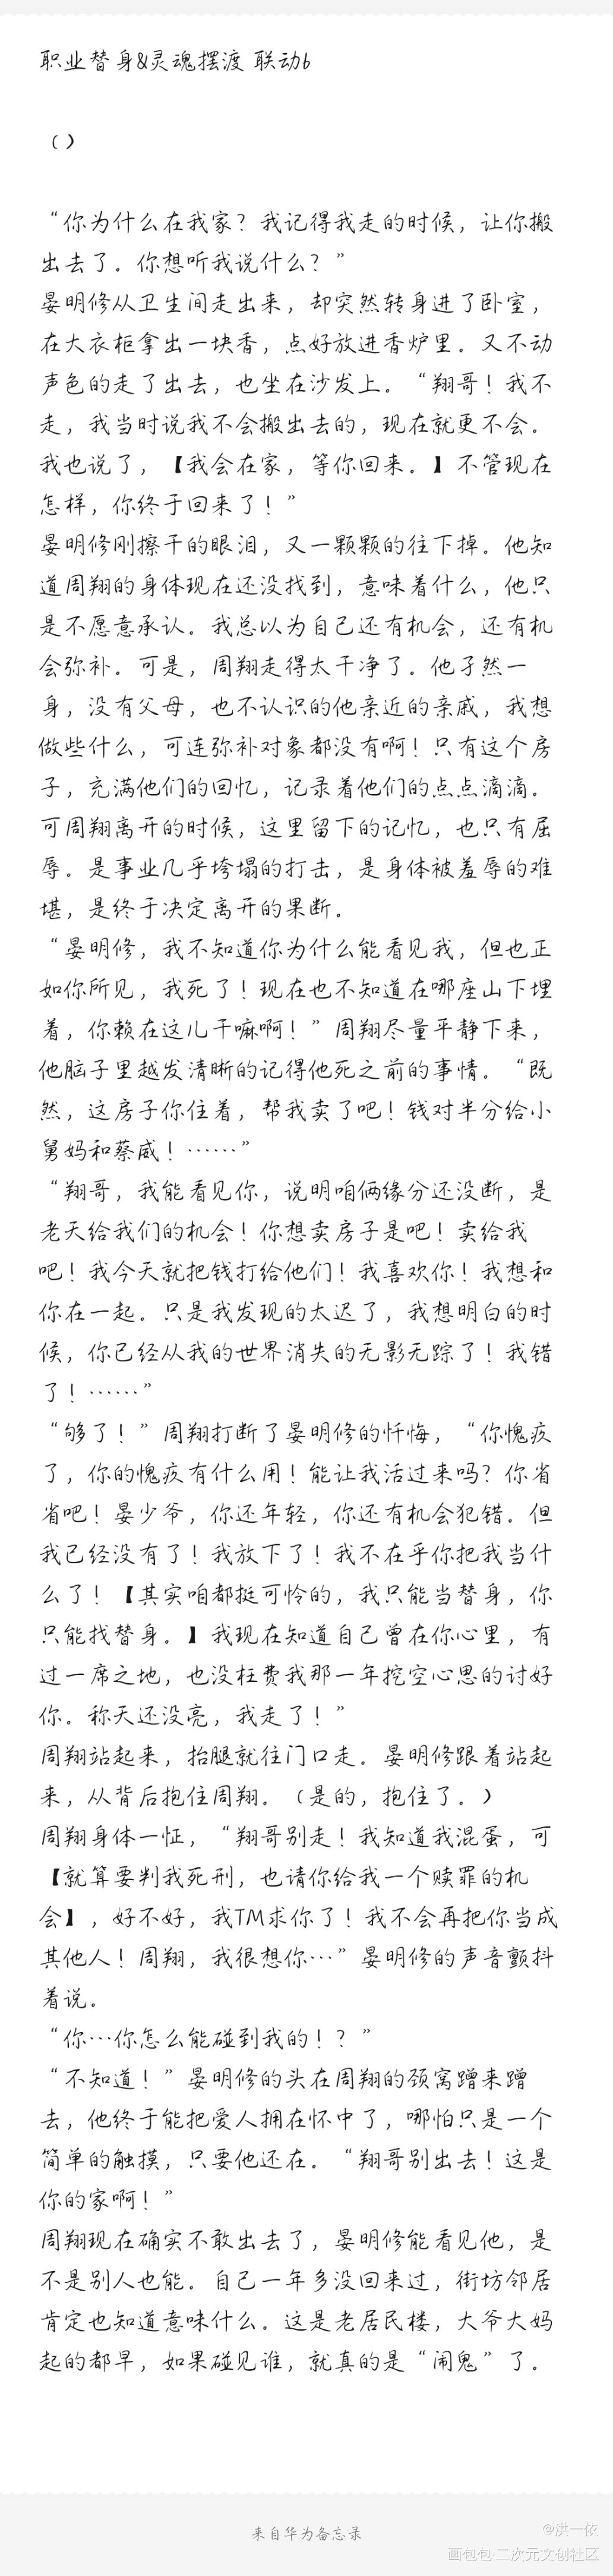 职业替身&灵魂摆渡 联动6
（）
“你为什么在我家？我记得我走的时候，让你搬
出去了。你想听我说什么？”
晏明修从卫生间走出来，却突然转身进了卧室，
在大衣柜拿出一块香，点好放进香炉里。又不动
声色的走了出去，也坐在沙发上。“翔哥！我不
走，我当时说我不会搬出去的，现在就更不会。
我也说了，【我会在家，等你回来。】不管现在
怎样，你终于回来了！”
晏明修刚擦干的眼泪，又一颗颗的往下掉。他知
道周翔的身体现在还没找到，意味着什么，他只
是不愿意承认。我总以为自己还有机会，还有机
会弥补。可是，周翔走得太干净了。他孑然一
身，没有父母，也不认识的他亲近的亲戚，我想
做些什么，可连弥补对象都没有啊！只有这个房
子，充满他们的回忆，记录着他们的点点滴滴。
可周翔离开的时候，这里留下的记忆，也只有屈
辱。是事业几乎垮塌的打击，是身体被羞辱的难
堪，是终于决定离开的果断。
“晏明修，我不知道你为什么能看见我，但也正
如你所见，我死了！现在也不知道在哪座山下埋
着，你赖在这儿干嘛啊！”周翔尽量平静下来，
他脑子里越发清晰的记得他死之前的事情。“既
然，这房子你住着，帮我卖了吧！钱对半分给小
舅妈和蔡威！……”
“翔哥，我能看见你，说明咱俩缘分还没断，是
老天给我们的机会！你想卖房子是吧！卖给我
吧！我今天就把钱打给他们！我喜欢你！我想和
你在一起。只是我发现的太迟了，我想明白的时
候，你已经从我的世界消失的无影无踪了！我错
了！……”
“够了！”周翔打断了晏明修的忏悔，“你愧疚
了，你的愧疚有什么用！能让我活过来吗？你省
省吧！晏少爷，你还年轻，你还有机会犯错。但
我已经没有了！我放下了！我不在乎你把我当什
么了！【其实咱都挺可怜的，我只能当替身，你
只能找替身。】我现在知道自己曾在你心里，有
过一席之地，也没枉费我那一年挖空心思的讨好
你。称天还没亮，我走了！”
周翔站起来，抬腿就往门口走。晏明修跟着站起
来，从背后抱住周翔。（是的，抱住了。）
周翔身体一怔，“翔哥别走！我知道我混蛋，可
【就算要判我死刑，也请你给我一个赎罪的机
会】，好不好，我TM求你了！我不会再把你当成
其他人！周翔，我很想你…”晏明修的声音颤抖
着说。
“你…你怎么能碰到我的！？”
“不知道！”晏明修的头在周翔的颈窝蹭来蹭
去，他终于能把爱人拥在怀中了，哪怕只是一个
简单的触摸，只要他还在。“翔哥别出去！这是
你的家啊！”
周翔现在确实不敢出去了，晏明修能看见他，是
不是别人也能。自己一年多没回来过，街坊邻居
肯定也知道意味什么。这是老居民楼，大爷大妈
起的都早，如果碰见谁，就真的是“闹鬼”了。
来自华为备忘录
@洪一依
画包包·二次元文创社区